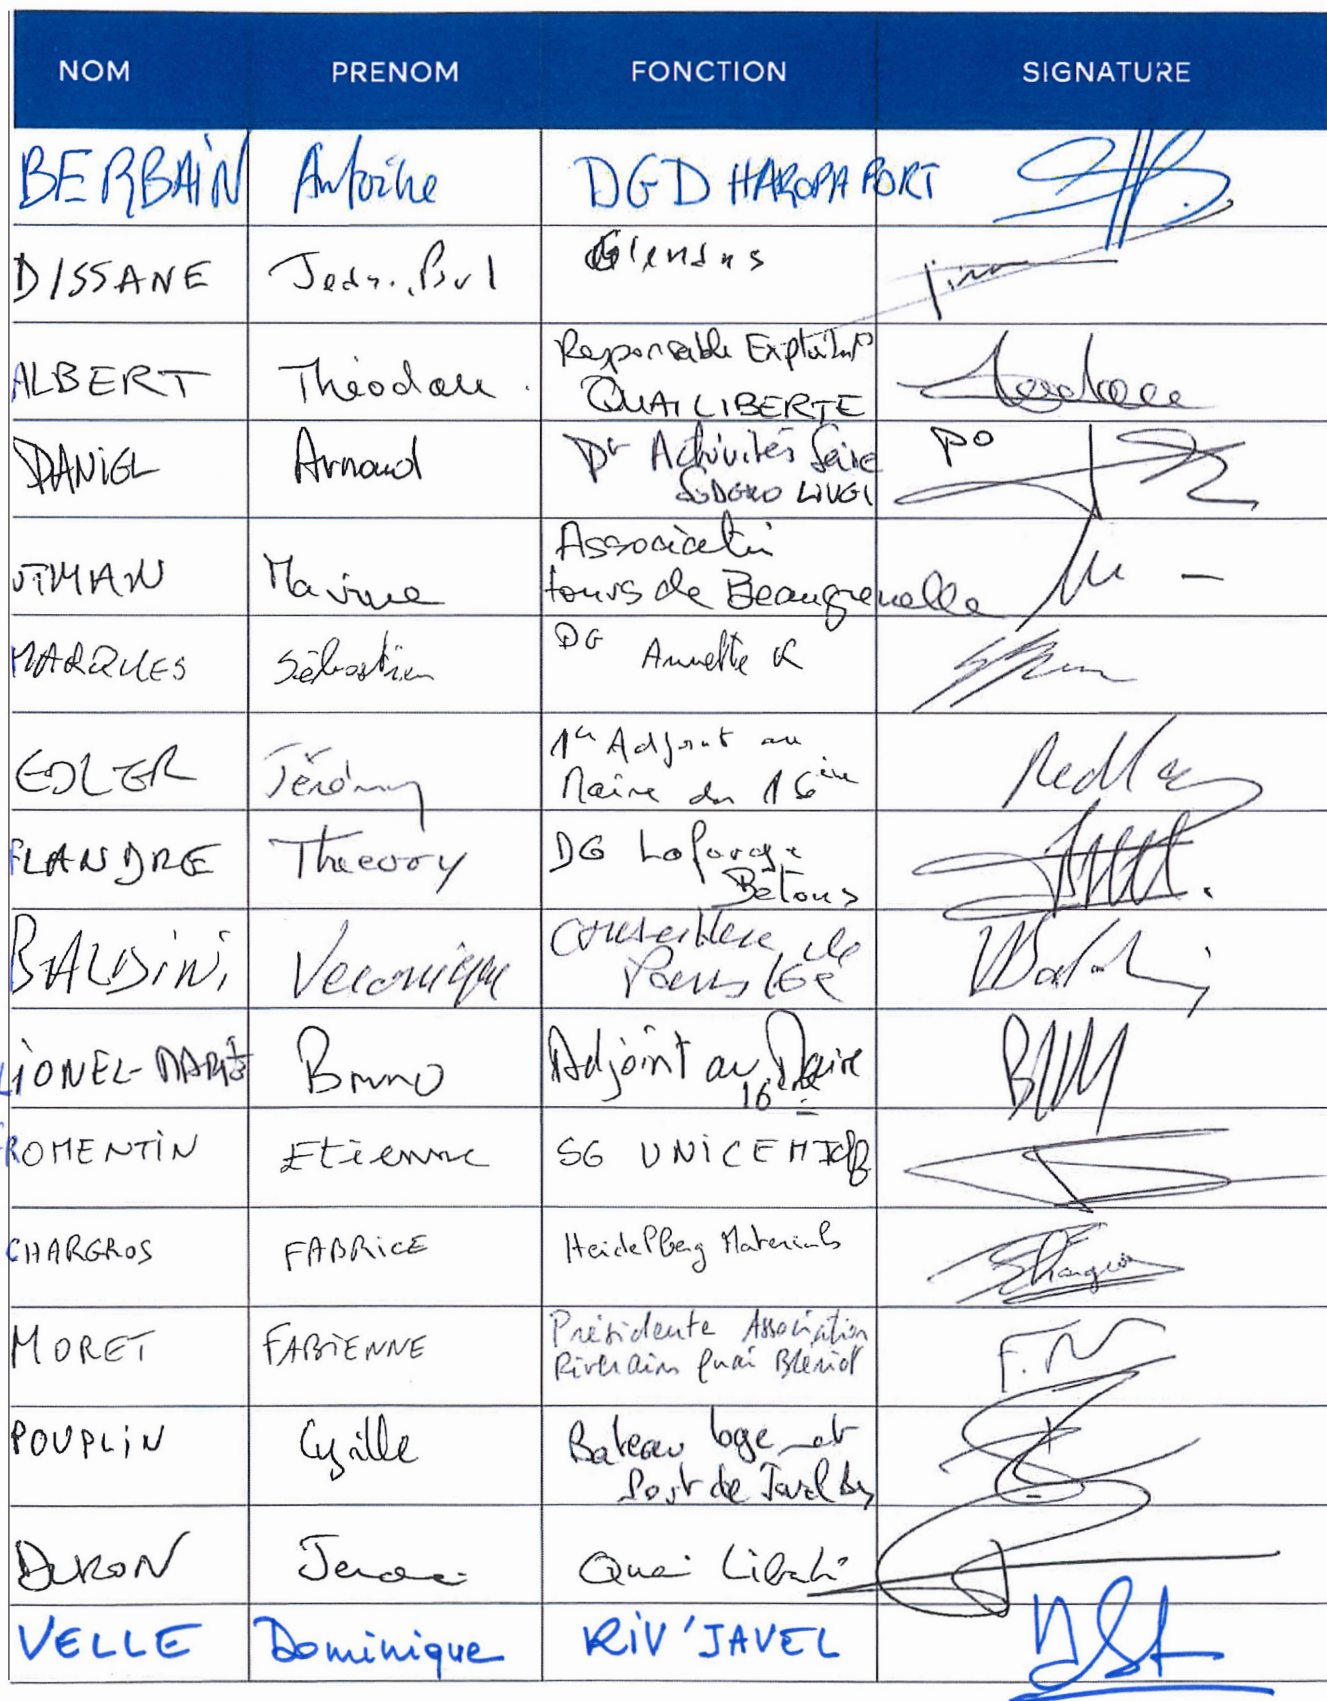 NOM PRENOM FONCTION SIGNATURE
BERBAIN Antoine DGD HAROPA PORT
DISSANE Jean-Paul
Responsable
ALBERT Théodore QUAI LIBERTE
DANIEL Arnaud Dr Activités Seine PO
Association
Maxime tours de Beaugrenelle
MARQUES Sébastien DG Annette K
EDLER Jérémy 1er Adjoint au
Maire du 16ème
FLANDRE Thierry DG Lafarge
Bétons
BALDINI Veronique Conseillère de
Paris 16è
LIONEL-MARIE Bruno Adjoint au Maire BLM
16ème
FROMENTIN Etienne SG UNICEM IDF
CHARGROS FABRICE Heidelberg Materials
MORET FABIENNE Présidente Association F.M
Riverains quai Blériot
POUPLIN Cyrille Bateau logement
Port de Javel Bas
DURON Quai Liberté
VELLE Dominique RIV'JAVEL